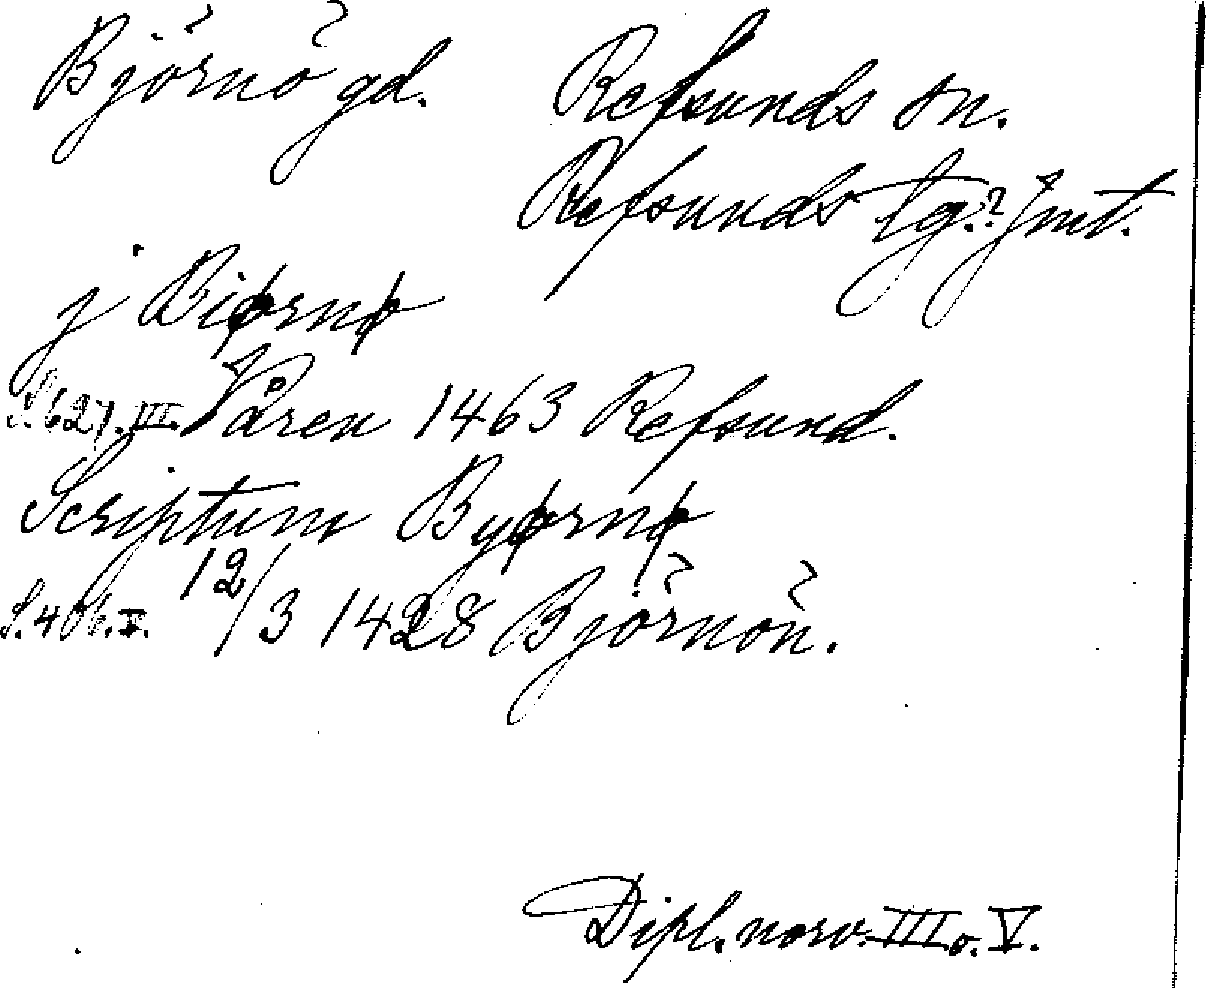 Björnö gd. Refsunds sn.
Refsunds tg.? Jmt.
j Biørnø
S. 627. III. Våren 1463 Refsund.
Scriptum Byørnø
S. 406. V. 12/3 1428 Björnön.
Dipl. norv. III o. V.